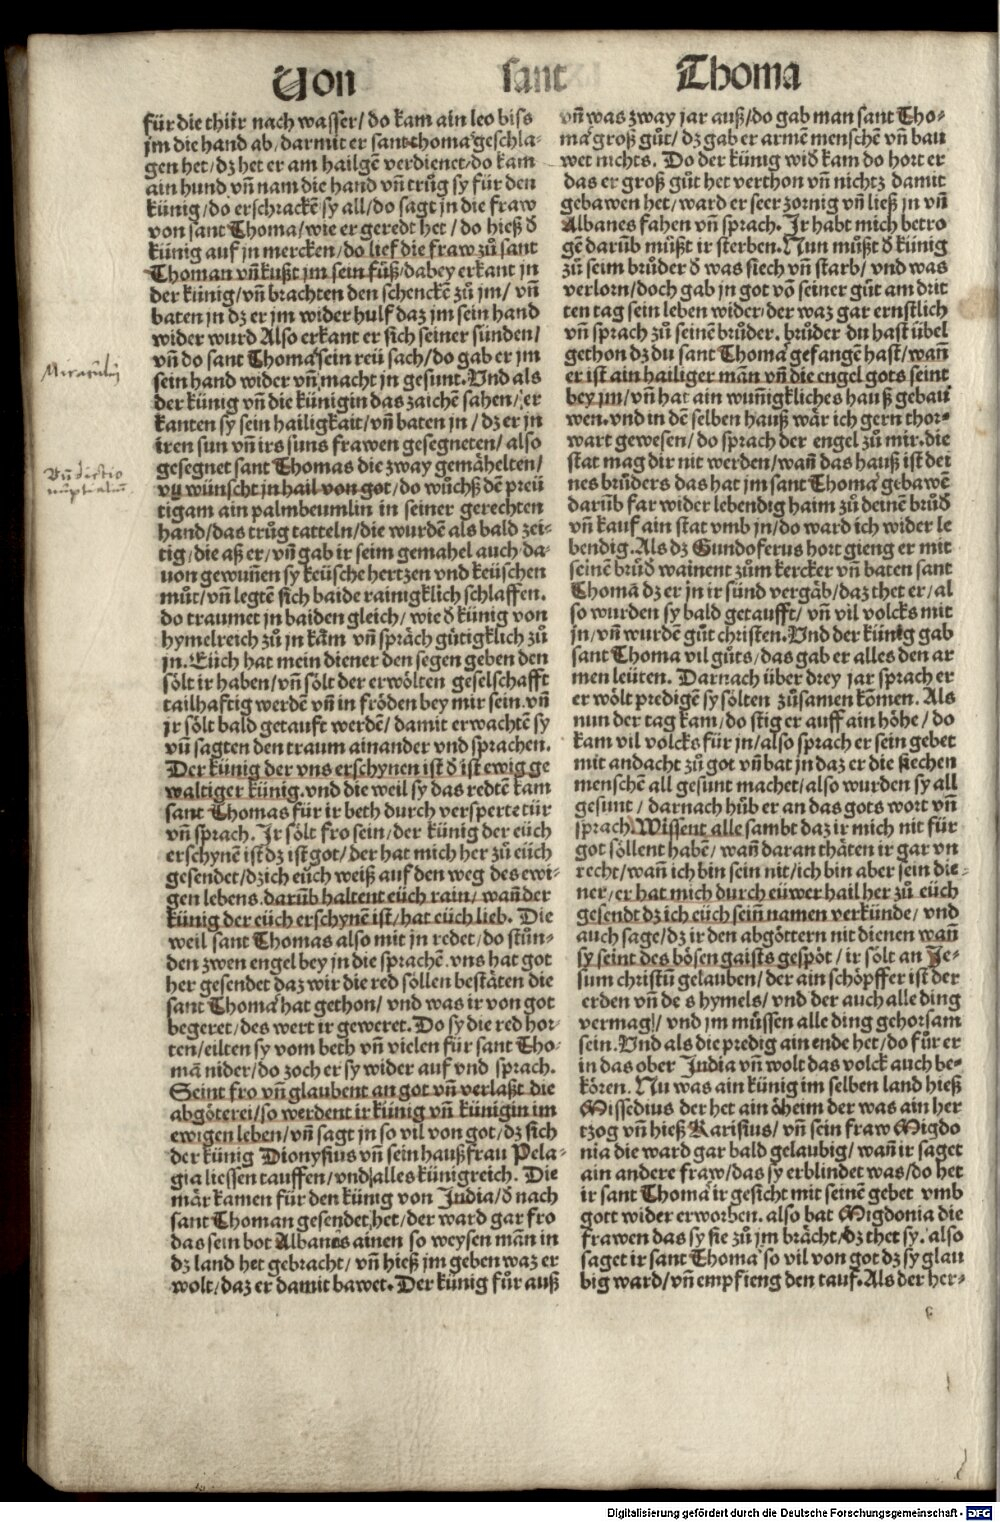 Von sant Thoma
für die thür nach wasser/ do kam ain leo biss
jm die hand ab/ darmit er sant thoma geschla-
gen het/ dz het er am hailgē verdienet/ do kam
ain hund vñ nam die hand vñ trůg sy für den
künig/ do erschrackē sy all/ do sagt jn die fraw
von sant Thoma/ wie er geredt het/ do hieß ď
künig auf jn mercken/ do lief die fraw zů sant
Thoman vñ kußt jm sein fůß/ dabey erkant jn
der künig/ vñ brachten den schenckē zů jm/ vñ
baten jn dz er jm wider hulf daz jm sein hand
wider wurd Also erkant er sich seiner sünden/
vñ do sant Thoma sein reü sach/ do gab er jm
sein hand wider vñ macht jn gesunt. Vnd als
der künig vñ die künigin das zaichē sahen/ er
kanten sy sein hailigkait/ vñ baten jn/ dz er jn
iren sun vñ irs suns frawen gesegneten/ also
gesegnet sant Thomas die zway gemähelten/
vñ wünscht jn hail von got/ do wůchß dē preü
tigam ain palmbeumlin in seiner gerechten
hand/ das trůg tatteln/ die wurdē als bald zei-
tig/ die aß er/ vñ gab ir seim gemahel auch/ da-
uon gewuñen sy keüsche hertzen vnd keüschen
můt/ vñ legtē sich baide rainigklich schlaffen.
do traumet jn baiden gleich/ wie ď künig von
hymelreich zů jn käm vñ spräch gůtigklich zů
jn. Eüch hat mein diener den segen geben den
sölt ir haben/ vñ sölt der erwölten geselschafft
tailhaftig werdē vñ in fröden bey mir sein. vñ
jr sölt bald getauft werdē/ damit erwachtē sy
vñ sagten den traum ainander vnd sprachen.
Der künig der vns erschynen ist ď ist ewig ge
waltiger künig. vnd die weil sy das redtē kam
sant Thomas für ir beth durch versperte tür
vñ sprach. Ir sölt fro sein/ der künig der eüch
erschynē ist dz ist got/ der hat mich her zů eüch
gesendet/ dz ich eüch weiß auf den weg des ewi-
gen lebens. darūb haltent eüch rain/ wañ der
künig der eüch erschynē ist/ hat eüch lieb. Die
weil sant Thomas also mit jn redet/ do stůn-
den zwen engel bey in die sprachē. vns hat got
her gesendet daz wir die red söllen bestäten die
sant Thoma hat gethon/ vnd was ir von got
begeret/ des wert ir geweret. Do sy die red hor-
ten/ eilten sy vom beth vñ vielen für sant Tho-
mā nider/ do zoch er sy wider auf vnd sprach.
Seint fro vñ glaubent an got vñ verlaßt die
abgöterei/ so werdent ir künig vñ künigin im
ewigen leben/ vñ sagt jn so vil von got/ dz sich
der künig Dionysius vñ sein haußfrau Pela-
gia liessen tauffen/ vnd alles künigreich. Die
mär kamen für den künig von India/ ď nach
sant Thoman gesendet het/ der ward gar fro
das sein bot Albanes ainen so weysen man in
dz land het gebracht/ vñ hieß jm geben waz er
wolt/ daz er damit bawet. Der künig für auß
vñ was zway jar auß/ do gab man sant Tho-
ma groß gůt/ dz gab er armē menschē vñ bau
wet nichts. Do der künig wiď kam do hort er
das er groß gůt het verthon vñ nichtz damit
gebawen het/ ward er seer zornig vñ ließ jn vñ
Albanes fahen vñ sprach. Ir habt mich betro
gē darūb müßt ir sterben. Nun můßt ď künig
zů seim brůder ď was siech vñ starb/ vnd was
verlorn/ doch gab jn got vō seiner güt am drit
ten tag sein leben wider/ der waz gar ernstlich
vñ sprach zů seinē brůder. brůder du hast übel
gethon dz du sant Thoma gefangē hast/ wañ
er ist ain hailiger man vñ die engel gots seint
bey jm/ vñ hat ain wuñigkliches hauß gebau
wen. vnd in dē selben hauß wär ich gern thor-
wart gewesen/ do sprach der engel zů mir. die
stat mag dir nit werden/ wañ das hauß ist dei
nes brůders das hat jm sant Thoma gebawē
darūb far wider lebendig haim zů deinē brůď
vñ kauf ain stat vmb jn/ do ward ich wider le
bendig. Als dz Gundoferus hort gieng er mit
seinē brůď wainent zům kercker vñ baten sant
Thoma dz er jn ir sünd vergäb/ daz thet er/ al
so wurden sy bald getaufft/ vñ vil volcks mit
jn/ vñ wurdē gůt christen. Vnd der künig gab
sant Thoma vil gůts/ das gab er alles den ar
men leüten. Darnach über drey jar sprach er
er wölt predigē sy sölten zůsamen kōmen. Als
nun der tag kam/ do stig er auff ain höhe/ do
kam vil volcks für jn/ also sprach er sein gebet
mit andacht zů got vñ bat jn daz er die siechen
menschē all gesunt machet/ also wurden sy all
gesunt/ darnach hůb er an das gots wort vñ
sprach. Wissent alle sambt daz ir mich nit für
got söllent habē/ wañ daran thäten ir gar vn
recht/ wañ ich bin sein nit/ ich bin aber sein die-
ner/ er hat mich durch eüwer hail her zů eüch
gesendt dz ich eüch seiñ namen verkünde/ vnd
auch sage/ dz ir den abgöttern nit dienen wañ
sy seint des bösen gaists gespöt/ ir sölt an Je-
sum christū gelauben/ der ain schöpffer ist der
erden vñ des hymels/ vnd der auch alle ding
vermag/ vnd jm müssen alle ding gehorsam
sein. Vnd als die predig ain ende het/ do für er
in das ober India vñ wolt das volck auch be-
kören. Nu was ain künig im selben land hieß
Missedius der het ain öheim der was ain her
tzog vñ hieß Karisius/ vñ sein fraw Migdo
nia die ward gar bald gelaubig/ wañ ir saget
ain andere fraw/ das sy erblindet was/ do het
ir sant Thoma ir gesicht mit seinē gebet vmb
gott wider erworben. also bat Migdonia die
frawen das sy sie zů jm brächt/ dz thet sy. also
saget ir sant Thoma so vil von got dz sy glau
big ward/ vñ empfieng den tauf. Als der her-
Digitalisierung gefördert durch die Deutsche Forschungsgemeinschaft - DFG